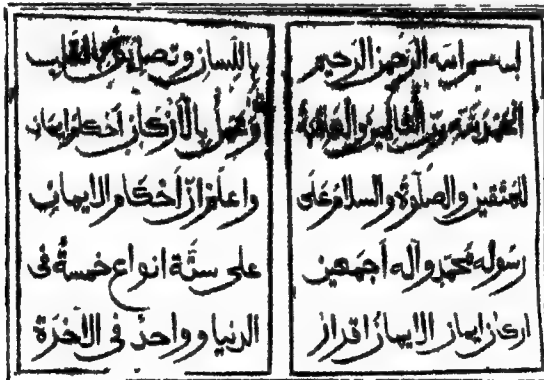 بسم الله الرحمن الرحيم
الحمد لله رب العالمين والعاقبة
للمتقين والصلوة والسلام على
رسوله محمد وآله أجمعين
اركان ايمان الايمان اقرار
باللسان وتصديق بالقلب
وعمل بالأركان احكام ايمان
واعلم ان احكام الايمان
على ستة انواع خمسة فى
الدنيا وواحد فى الآخرة